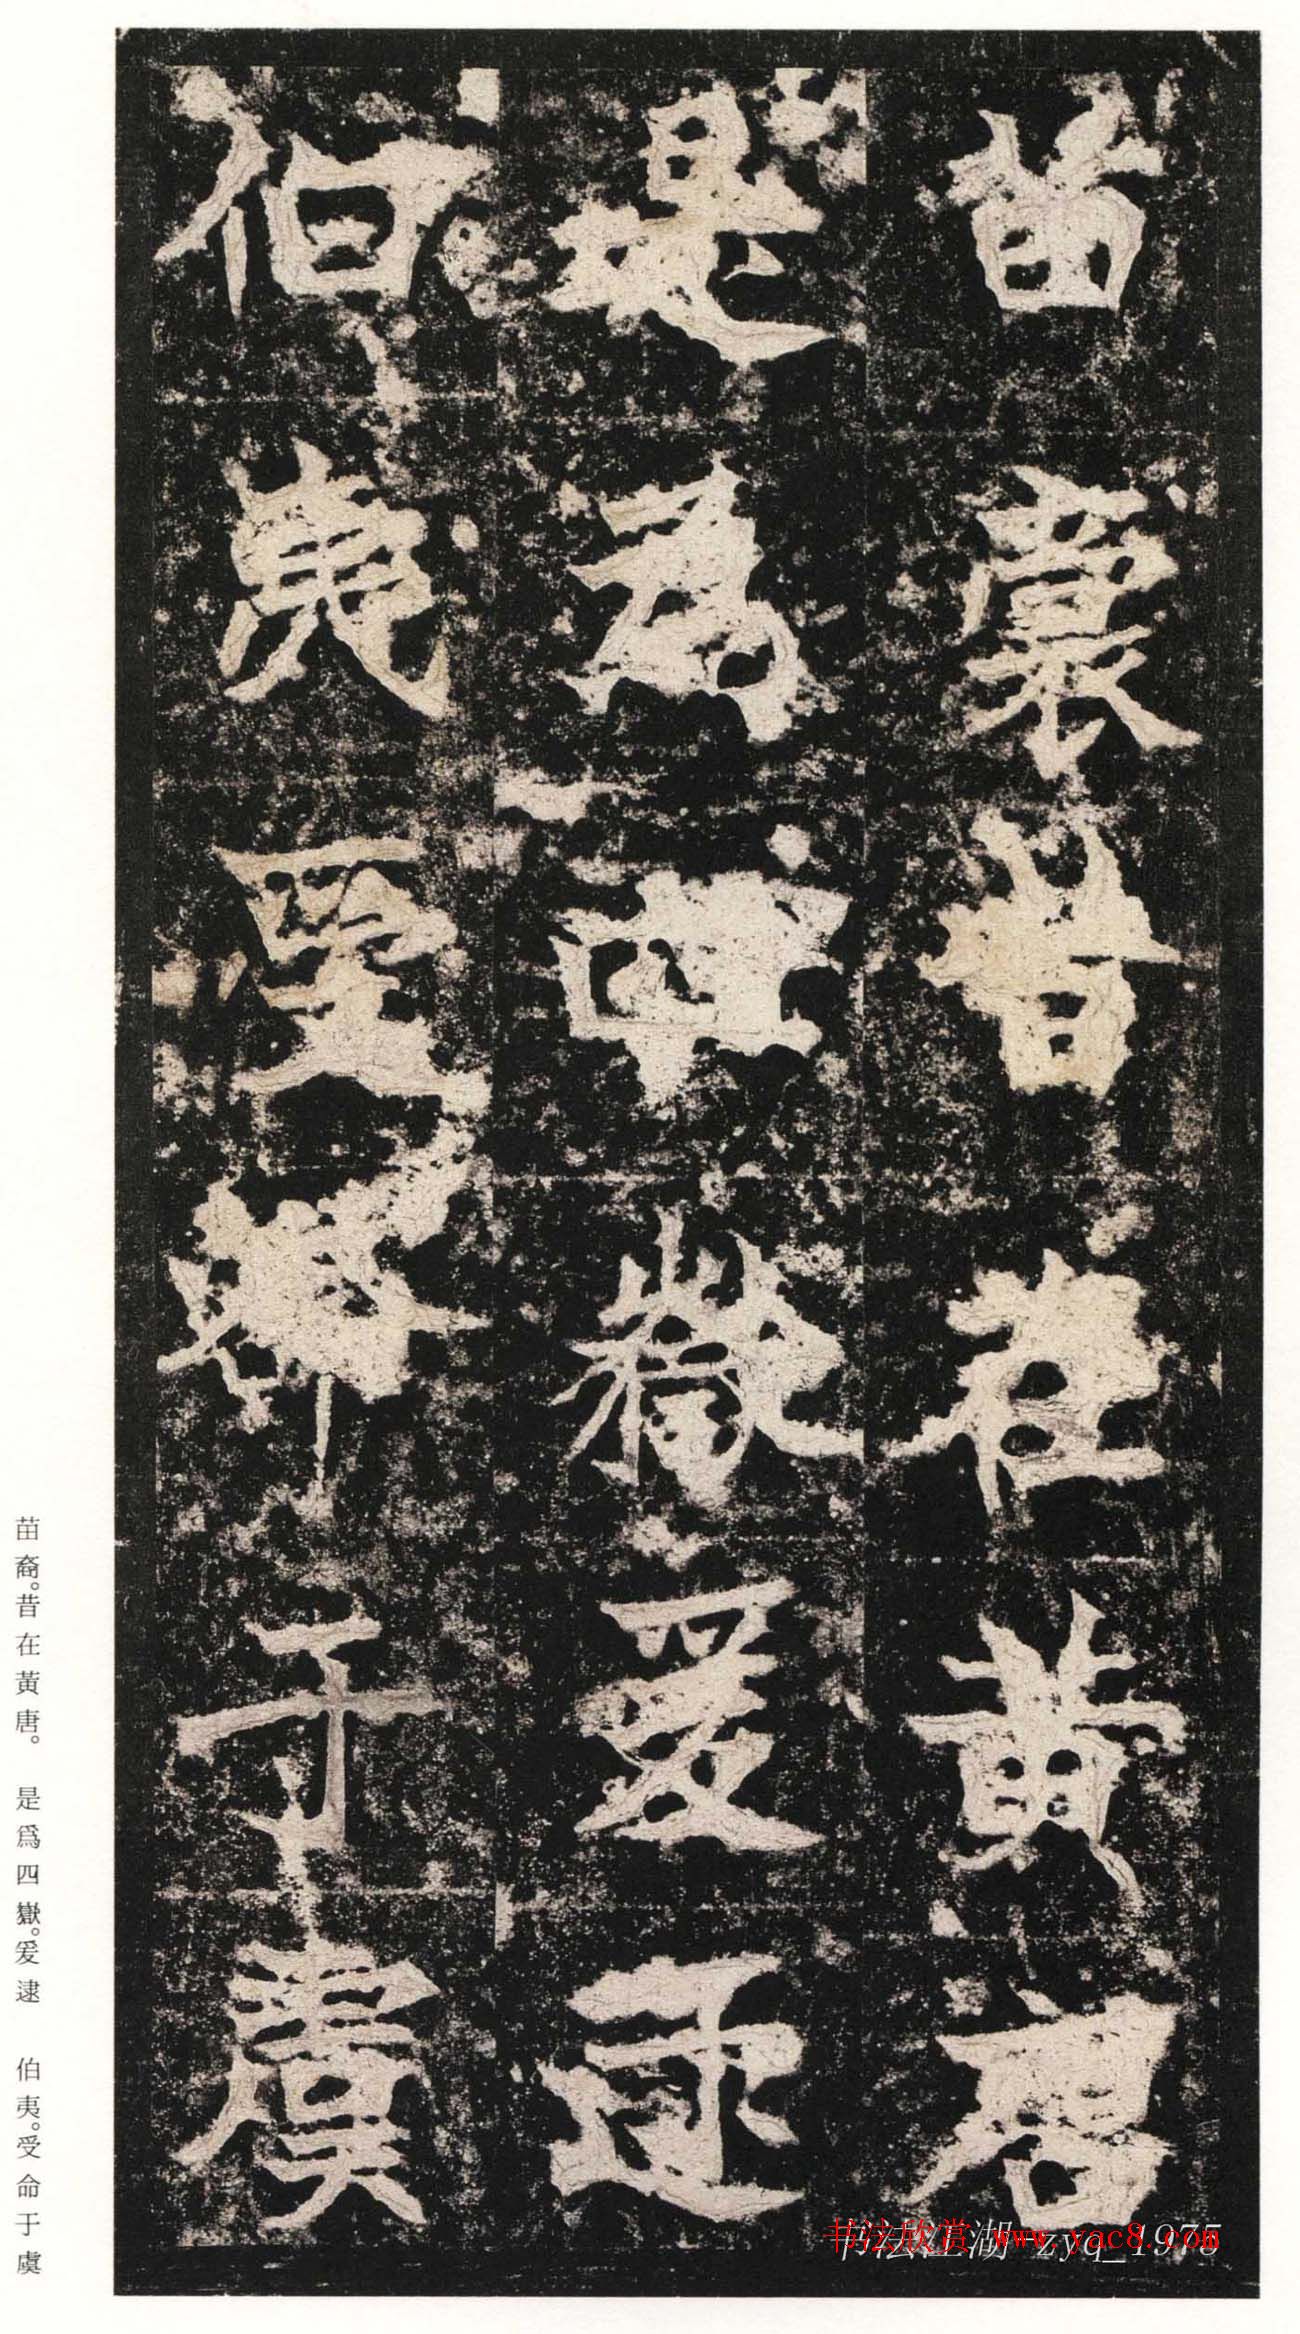 苗裔昔在黃唐
是為四嶽爰逮
伯夷受命于虞
苗裔。昔在黃唐。　是爲四嶽。爰逮　伯夷。受命于虞
书法欣赏 www.yac8.com
书法江湖-zyq_1975